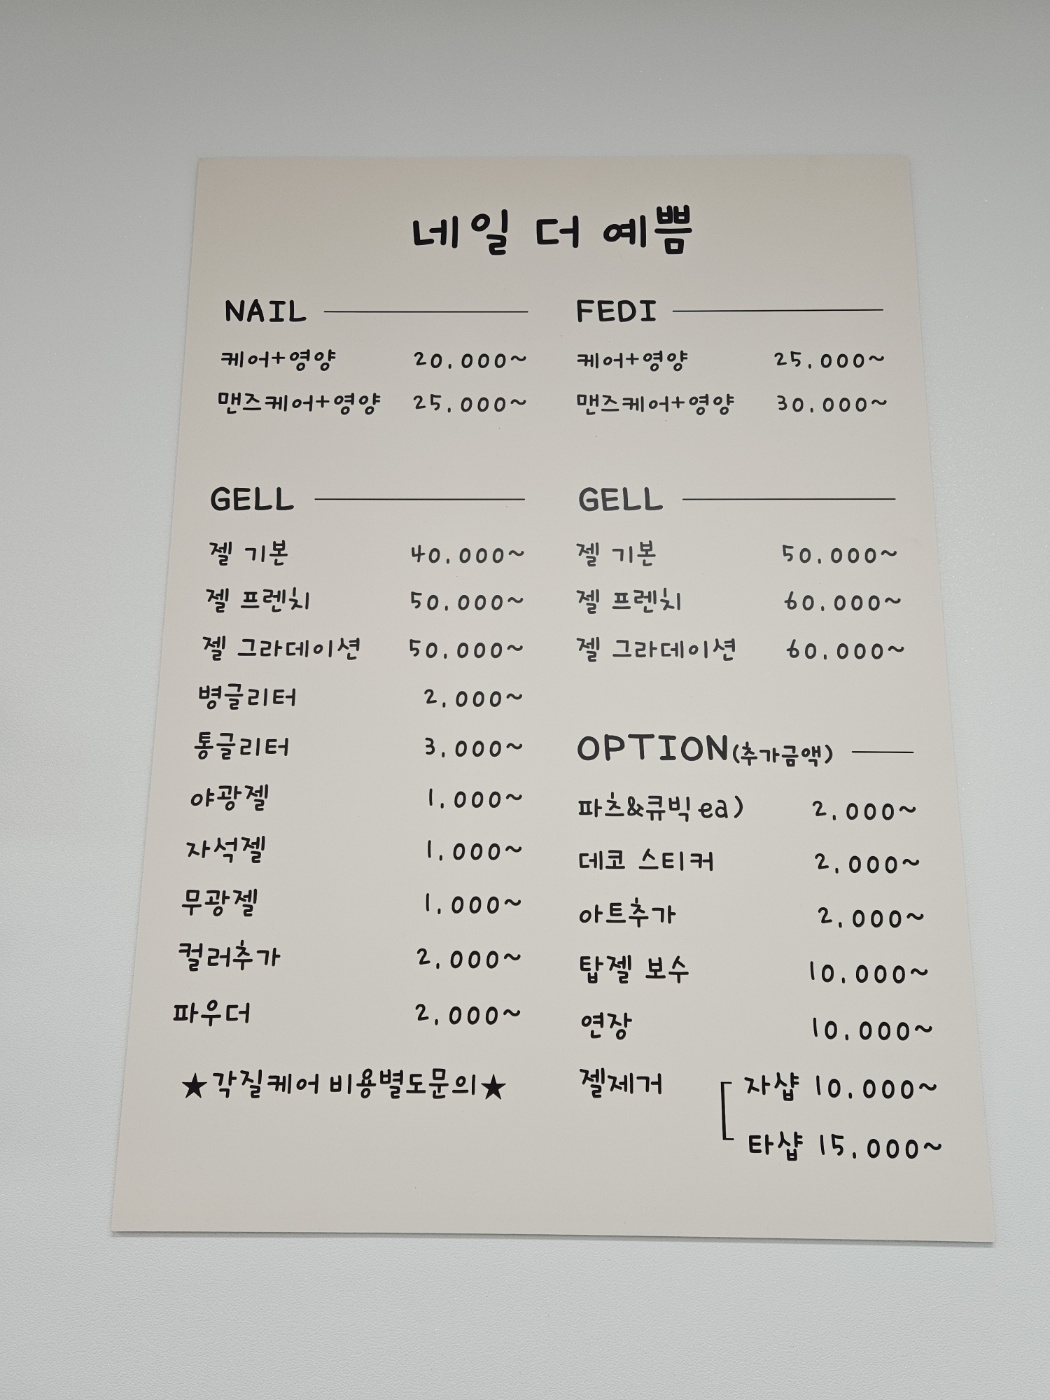 네일 더 예쁨
NAIL
케어+영양 20,000~
맨즈케어+영양 25,000~
GELL
젤 기본 40,000~
젤 프렌치 50,000~
젤 그라데이션 50,000~
병글리터 2,000~
통글리터 3,000~
야광젤 1,000~
자석젤 1,000~
무광젤 1,000~
컬러추가 2,000~
파우더 2,000~
★각질케어 비용별도문의★
FEDI
케어+영양 25,000~
맨즈케어+영양 30,000~
GELL
젤 기본 50,000~
젤 프렌치 60,000~
젤 그라데이션 60,000~
OPTION(추가금액)
파츠&큐빅 ea) 2,000~
데코 스티커 2,000~
아트추가 2,000~
탑젤 보수 10,000~
연장 10,000~
젤제거 자샵 10,000~
타샵 15,000~